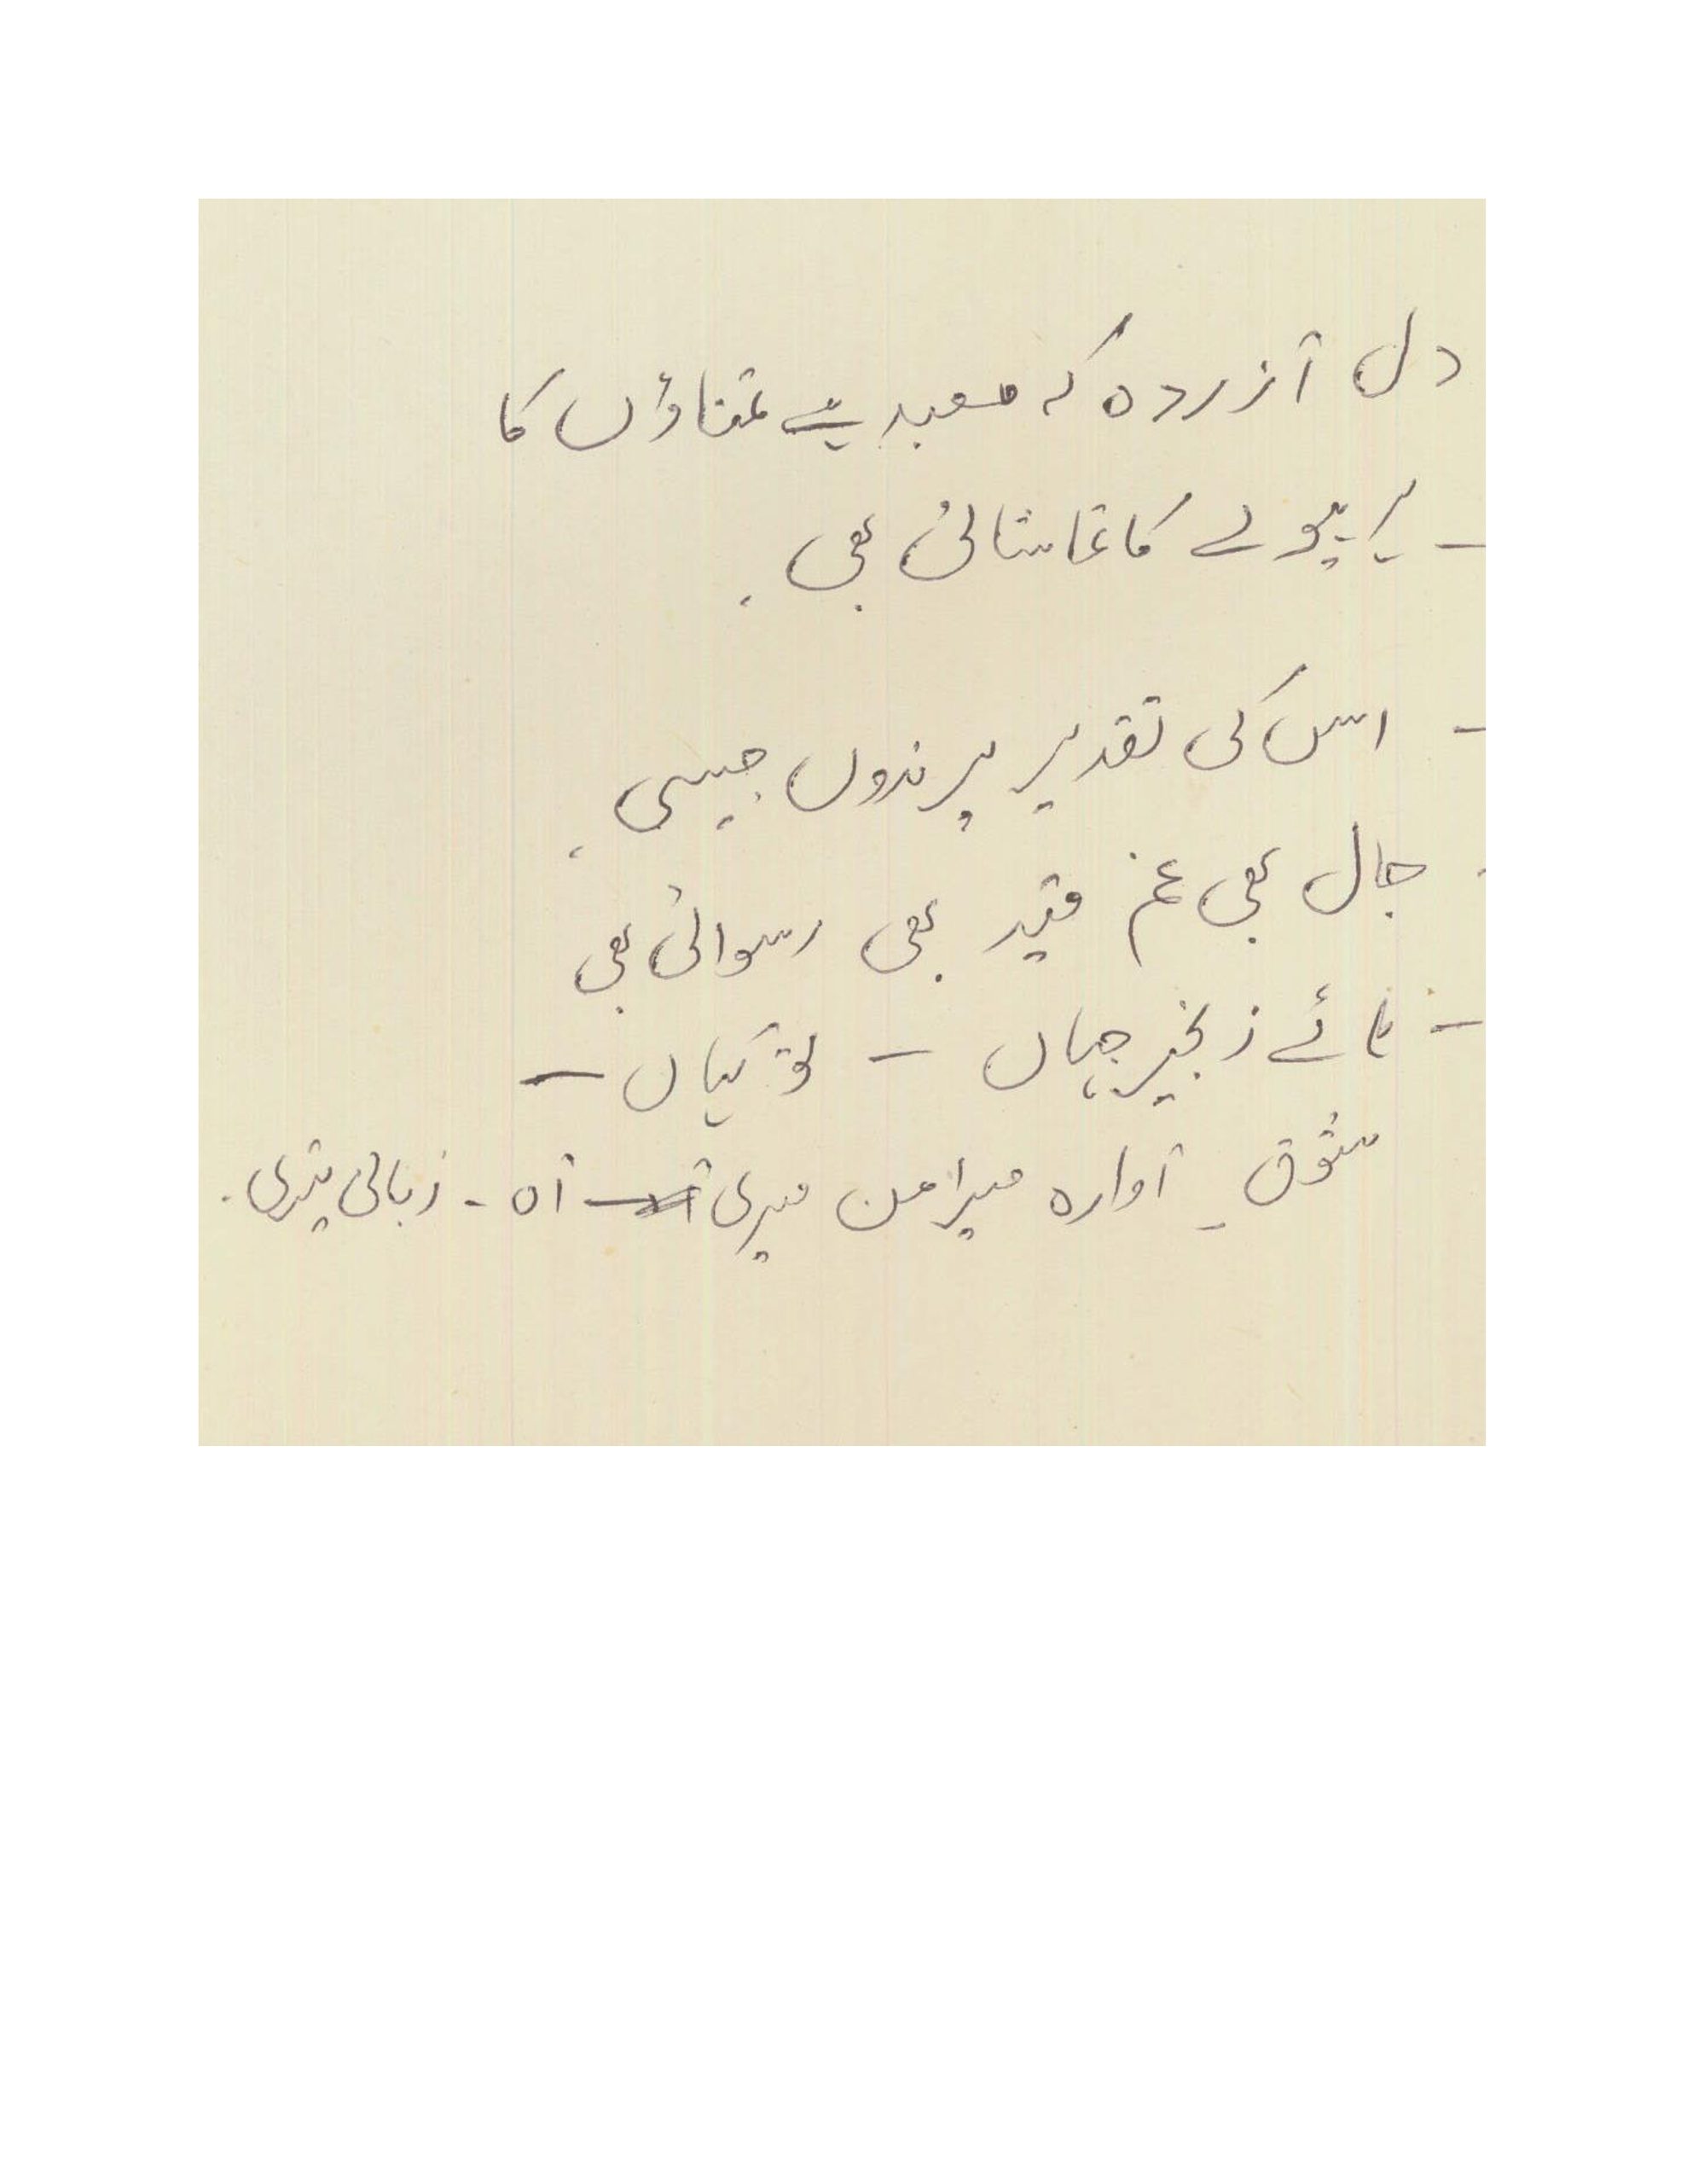 دل آزردہ کہ معبد ہے تمناؤں کا
- ہر ہیولے کا تماشائی بھی
- اس کی تقدیر پرندوں جیسی
جال بھی غم قید بھی رسوائی بھی
- ہائے زنجیر جہاں - تو کہاں -
شوق آوارہ میرا من میری آہ - زبانی تیری